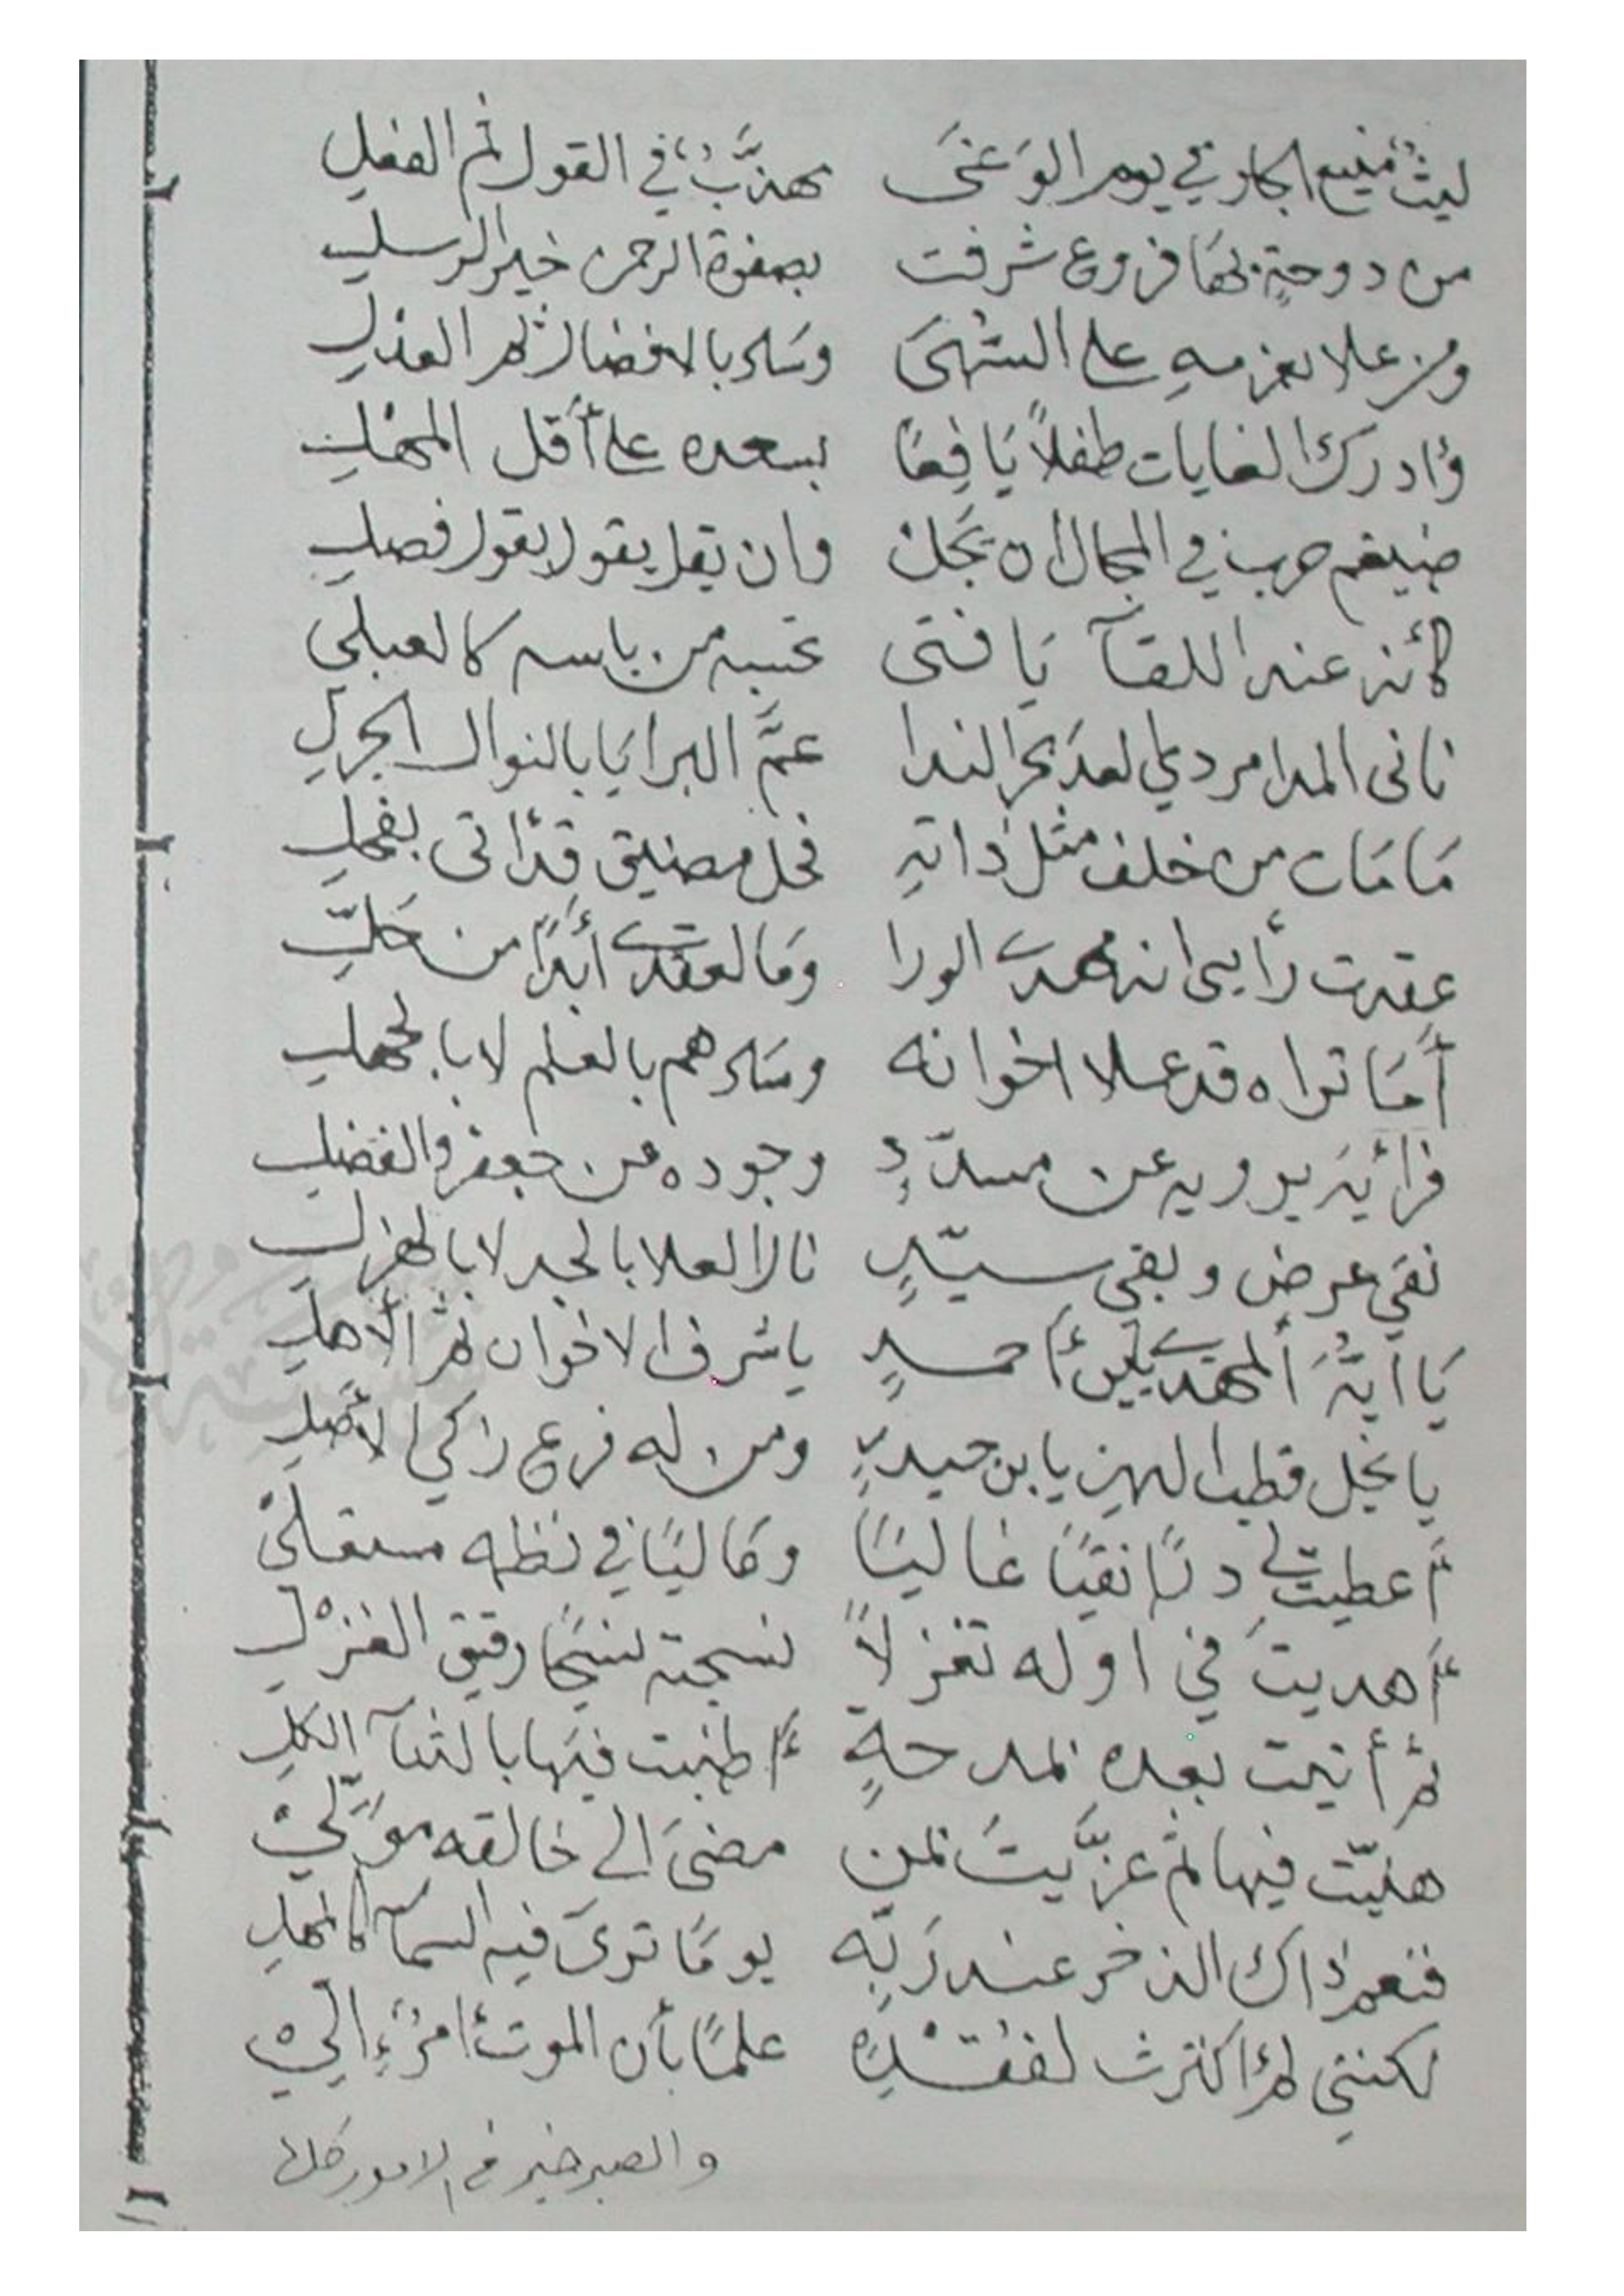 ليثٌ منيع الجار في يوم الوَغَى مهذَّبٌ في القول ثم الفعل
من دوحةٍ بها فروع شرفت بصفوة الرحمن خير الرسل
ومن علا بعزمهِ على السُّهَى وساد بالافضال ثم العذل
وأدرك الغايات طفلاً يَافِعًا بسعده على أقل المَهْل
ضيغم حرب في المجال ان يَجُلْ وان يقل يقول بقول فصل
كأنه عند اللقآ يَا فتى تحسبه من باسه كالعبلي
نائى المدا مردي العدَى بحر الندا عمَّ البرايَا بالنوال الجزلِ
مَا مَات من خلف مثل ذاتهِ فحل مضيق قد أتى بفحل
عقدت رأيى انه مهدي الورا ومَا لعقدي أبدًا من حَلِّ
أمَا تراه قد علا اخوانه وسَادهم بالعلم لا بالجهل
فرأيهُ يرويه عن مسدّدٍ وجوده عن جعفر والفضل
نقي عرض وبقي سيّدٍ نال العلا بالجد لا بالهزل
يَا ايهُّا المهدي يابن أحمدٍ يا شرف الاخوان ثم الأهل
يا نجل قطب الدين يا بن حيدرٍ ومن له فرع زاكي الأصل
أعطيتني درًا نقيًا غاليًا وغاليًا في نظمه مستغلى
أهديتَ في اوله تغزلاً نسجته نسجًا رقيق الغَزْل
ثم أتيت بعده بمدحةٍ أطنبت فيها بالثنآ الكلِ
هنيّت فيها ثم عزَّيتَ بمن مضىَ الى خالقه مُوَلِّيْ
فنعم ذاك الذخر عند رَبِّه يومًا ترىَ فيه السمآ كالمهل
لكنني لم أكترث لفقْدهِ علمًا بأن الموت أمرٌ إلهيْ
والصبر خير في الامور كلها